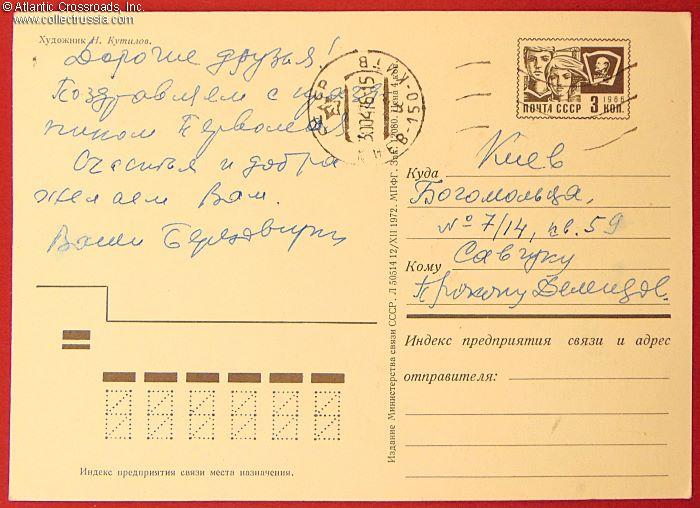 © Atlantic Crossroads, Inc.
www.collectrussia.com
Художник Н. Кутилов.
Дорогие друзья!
Поздравляем с празд-
ником Первомая!
Счастья и добра
желаем Вам.
Ваши
ПОЧТА СССР
1966
3 КОП.
Куда Киев
Богомольца,
№ 7/14, кв. 59
Кому Савчуку
Прокопу Демидов.
Индекс предприятия связи и адрес
отправителя:
Издание Министерства связи СССР. Л 50514 12/XII 1972. МПФГ. Зак. 12080. Цена 4 коп.
Индекс предприятия связи места назначения.